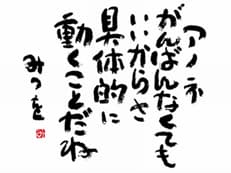 アノネ
がんばんなくても
いいからさ
具体的に
動くことだね
みつを